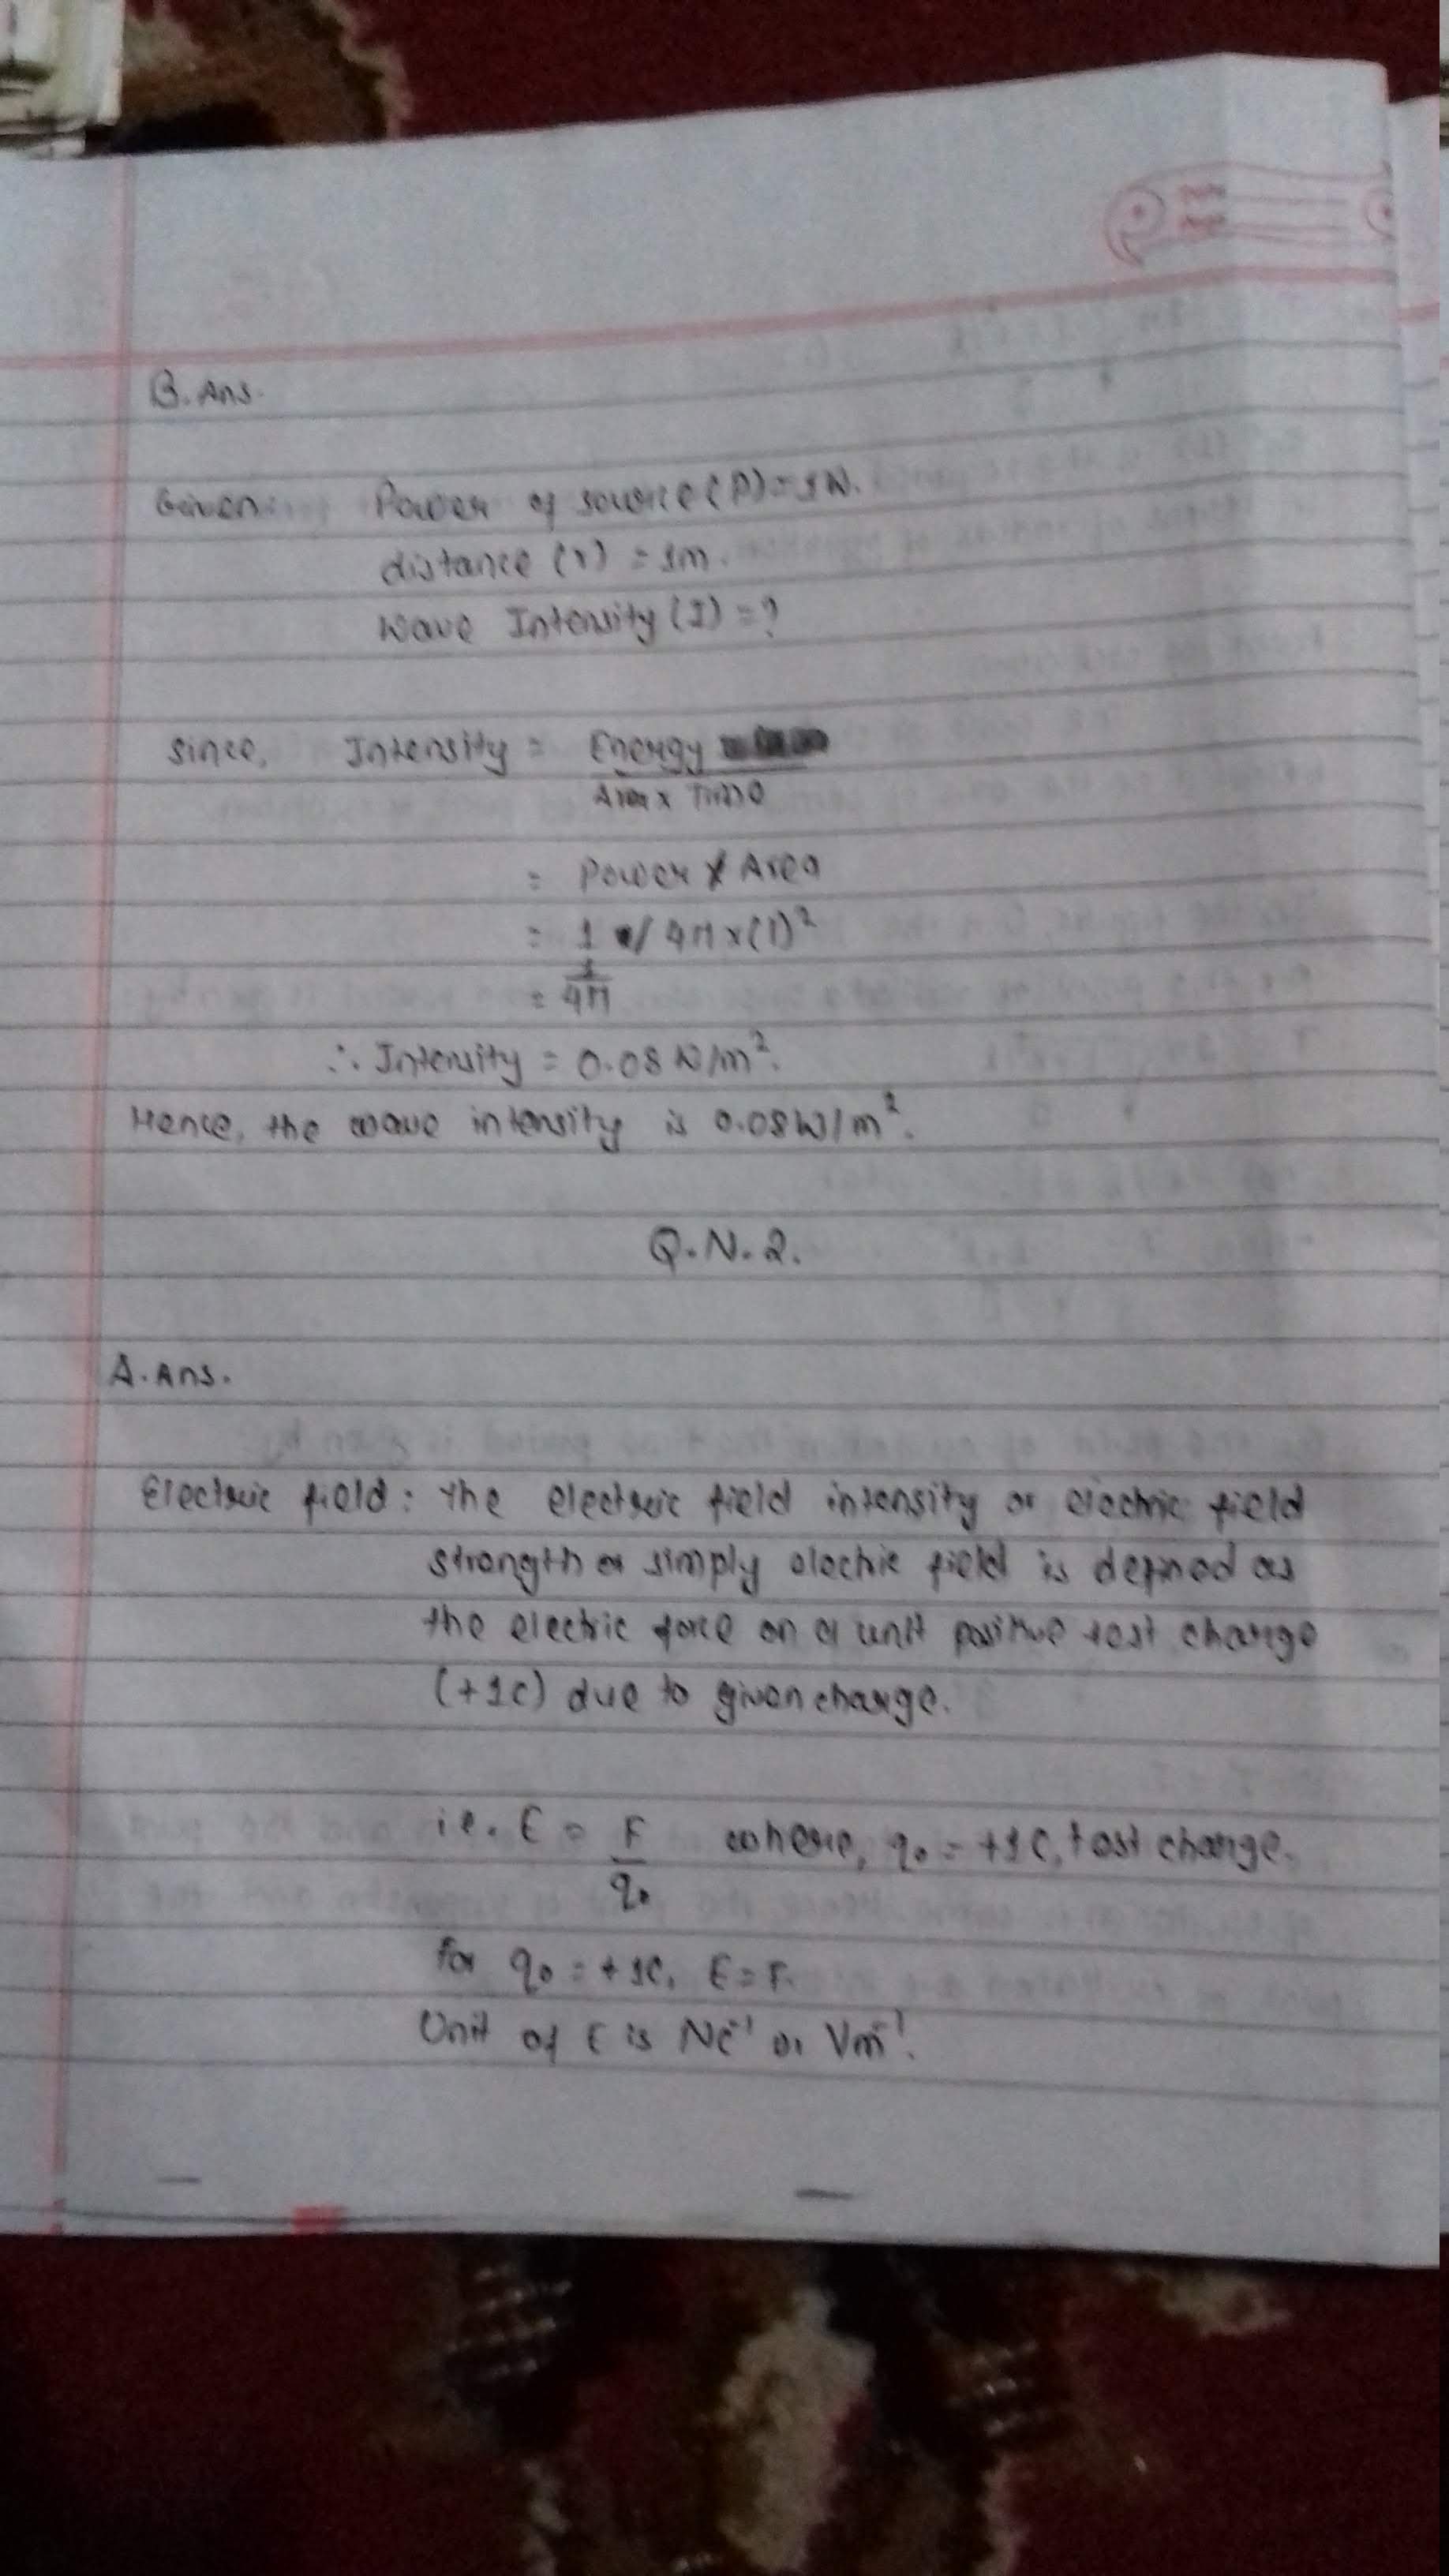 B. Ans.
Given, Power of source (P) = 1W.
distance (r) = 1m.
Wave Intensity (I) = ?
Since, Intensity = Energy
Area x Time
= Power / Area
= 1 / 4π x (1)²
= 1
4π
∴ Intensity = 0.08 W/m².
Hence, the wave intensity is 0.08W/m².
Q.N.2.
A. Ans.
Electric field: The electric field intensity or electric field
strength or simply electric field is defined as
the electric force on a unit positive test charge
(+1C) due to given charge.
i.e. E = F where, q₀ = +1C, test charge.
q₀
for q₀ = +1C, E = F.
Unit of E is NC⁻¹ or Vm⁻¹.